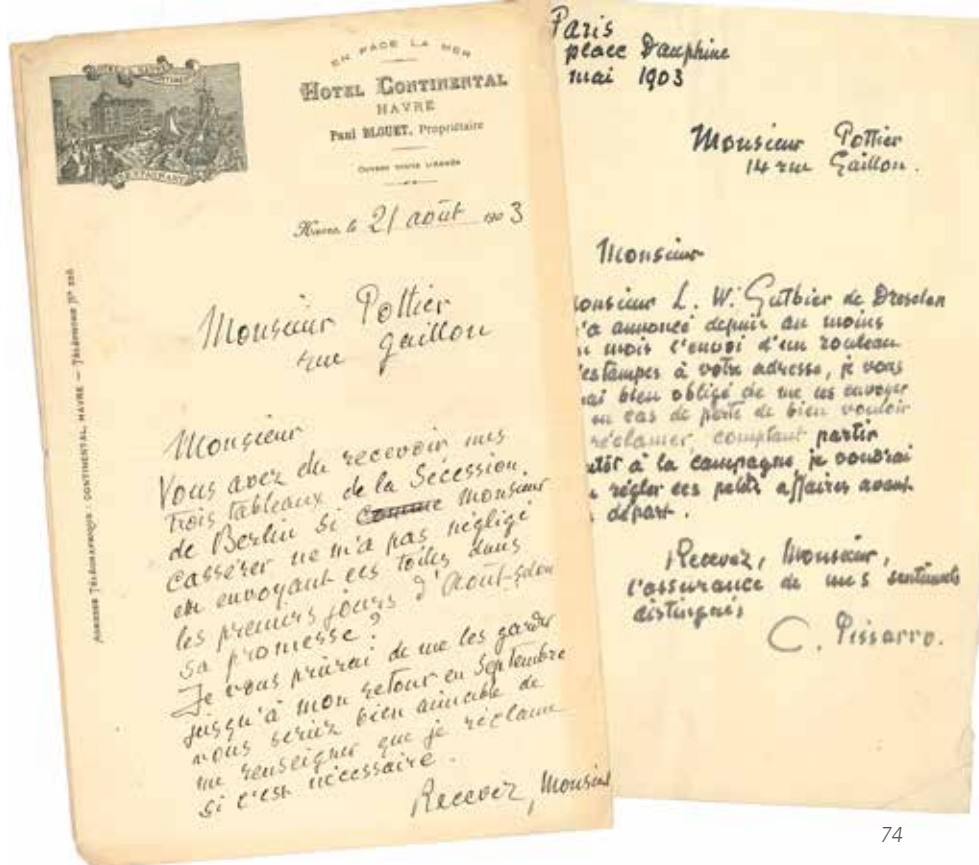 EN FACE LA MER
HOTEL CONTINENTAL
HAVRE
Paul BLOUET, Propriétaire
OUVERT TOUTE L'ANNÉE
RESTAURANT
ADRESSE TÉLÉGRAPHIQUE : CONTINENTAL, HAVRE — TÉLÉPHONE Nº
Havre, le 21 août 1903
Monsieur Pottier
rue Gaillon
Monsieur
Vous avez du recevoir mes
trois tableaux de la Sécession
de Berlin si comme monsieur
Cassérer ne m'a pas négligé
en envoyant ces toiles dans
les premiers jours d'Août selon
sa promesse ?
Je vous prirai de me les garder
jusqu'à mon retour en Septembre
vous seriez bien aimable de
me renseigner que je réclame
si c'est nécessaire.
Recevez, Monsieu
Paris
place Dauphine
mai 1903
Monsieur Pottier
14 rue Gaillon.
Monsieur
onsieur L. W. Gutbier de Dresden
'a annoncé depuis au moins
n mois l'envoi d'un rouleau
'estampes à votre adresse, je vous
rai bien obligé de me les envoyer
en cas de perte de bien vouloir
réclamer, comptant partir
utôt à la campagne je voudrai
régler ces petits affaires avant
départ.
Recevez, Monsieur,
l'assurance de mes sentiments
distingués
C. Pissarro.
74